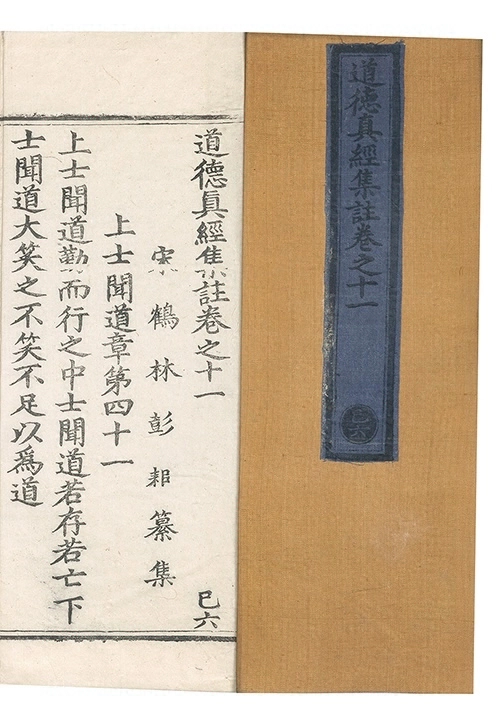 道德真經集註卷之十一
道德真經集註卷之十一
巳六
宋鶴林彭耜纂集
上士聞道章第四十一
上士聞道勤而行之中士聞道若存若亡下
士聞道大笑之不笑不足以爲道